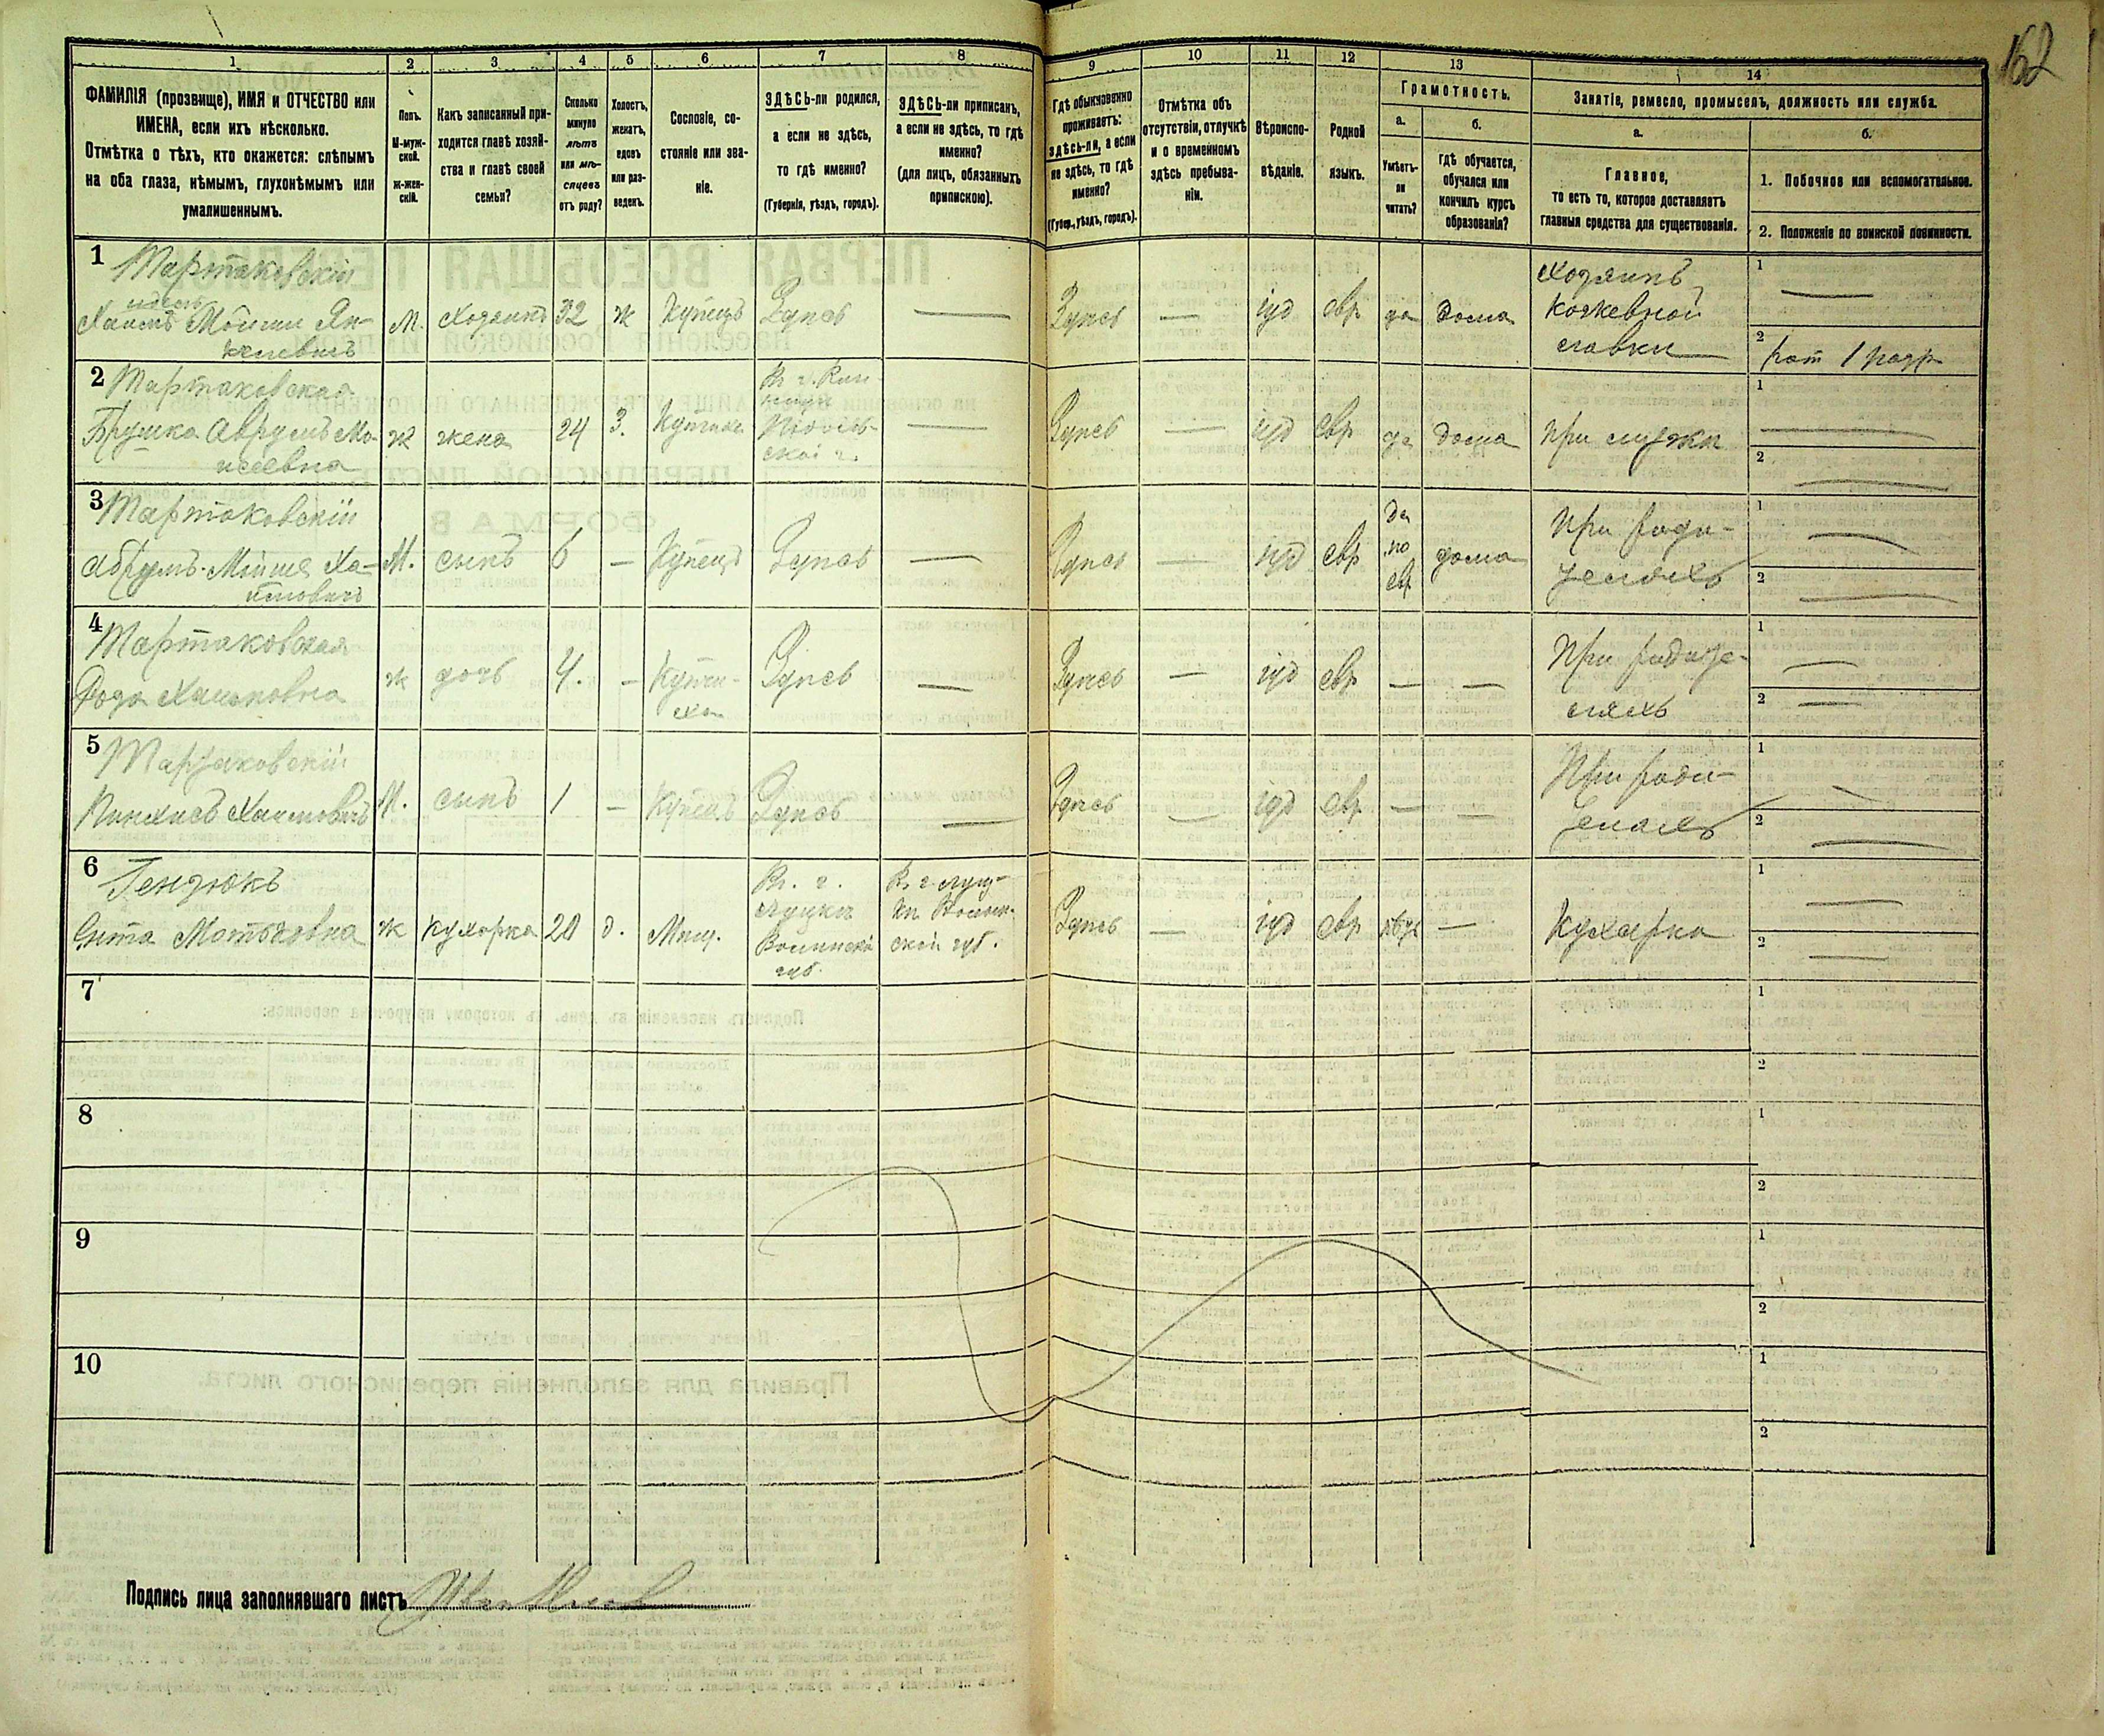 162
1 2 3 4 5 6 7 8 9 10 11 12 13 14
ФАМИЛІЯ (прозвище), ИМЯ и ОТЧЕСТВО или
ИМЕНА, если ихъ нѣсколько.
Отмѣтка о тѣхъ, кто окажется: слѣпымъ
на оба глаза, нѣмымъ, глухонѣмымъ или
умалишеннымъ.
Полъ.
М-муж-
ской.
ж-жен-
скій.
Какъ записанный при-
ходится главѣ хозяй-
ства и главѣ своей
семьи?
Сколько
минуло
лѣтъ
или мѣ-
сяцевъ
отъ роду?
Холостъ,
женатъ,
вдовъ
или раз-
веденъ.
Сословіе, со-
стояніе или зва-
ніе.
ЗДѢСЬ-ли родился,
а если не здѣсь,
то гдѣ именно?
(Губернія, уѣздъ, городъ).
ЗДѢСЬ-ли приписанъ,
а если не здѣсь, то гдѣ
именно?
(для лицъ, обязанныхъ
припискою).
Гдѣ обыкновенно
проживаетъ:
здѣсь-ли, а если
не здѣсь, то гдѣ
именно?
(Губер., уѣздъ, городъ).
Отмѣтка объ
отсутствіи, отлучкѣ
и о временномъ
здѣсь пребыва-
ніи.
Вѣроиспо-
вѣданіе.
Родной
языкъ.
Грамотность.
а.
Умѣетъ-
ли
читать?
б.
гдѣ обучается,
обучался или
кончилъ курсъ
образованія?
Занятіе, ремесло, промыселъ, должность или служба.
а.
Главное,
то есть то, которое доставляетъ
главныя средства для существованія.
б.
1. Побочное или вспомогательное.
2. Положеніе по воинской повинности.
1 Тартаковскій
Хаимъ Мойши Ян-
келевичъ
М. Хозяинъ 32 ж Купецъ Здѣсь — Здѣсь — іуд евр да дома
Хозяинъ
кожевной
лавки
1 —
2 рат 1 разр
2 Тартаковская
Брушка Аврумъ Мо-
исеевна
ж жена 24 З. Купчиха
— Здѣсь — іуд евр да дома при мужѣ
1 —
2 —
3 Тартаковскій
Абрумъ-Мойше Ха-
имовичъ
М. сынъ 6 — Купецъ Здѣсь — Здѣсь — іуд евр
да
по
евр
дома
При роди-
теляхъ
1 —
2 —
4 Тартаковская
Роза Хаимовна
ж дочь 4. — Купчи-
ха
Здѣсь — Здѣсь — іуд евр — —
При родите-
ляхъ
1 —
2 —
5 Тартаковскій
Пинхасъ Хаимовичъ
М. сынъ 1 — Купецъ Здѣсь — Здѣсь — іуд евр — —
При роди-
теляхъ
1 —
2 —
6 Гендюкъ
Ента Мотьковна
ж кухарка 20 д. Мѣщ.
В. г.
Луцкѣ
Волынской
губ.
В. г. Луц-
кѣ Волын-
ской губ.
Здѣсь — іуд евр — Кухарка
1 —
2 —
7 1
2
8 1
2
9 1
2
10 1
2
Подпись лица заполнявшаго листъ